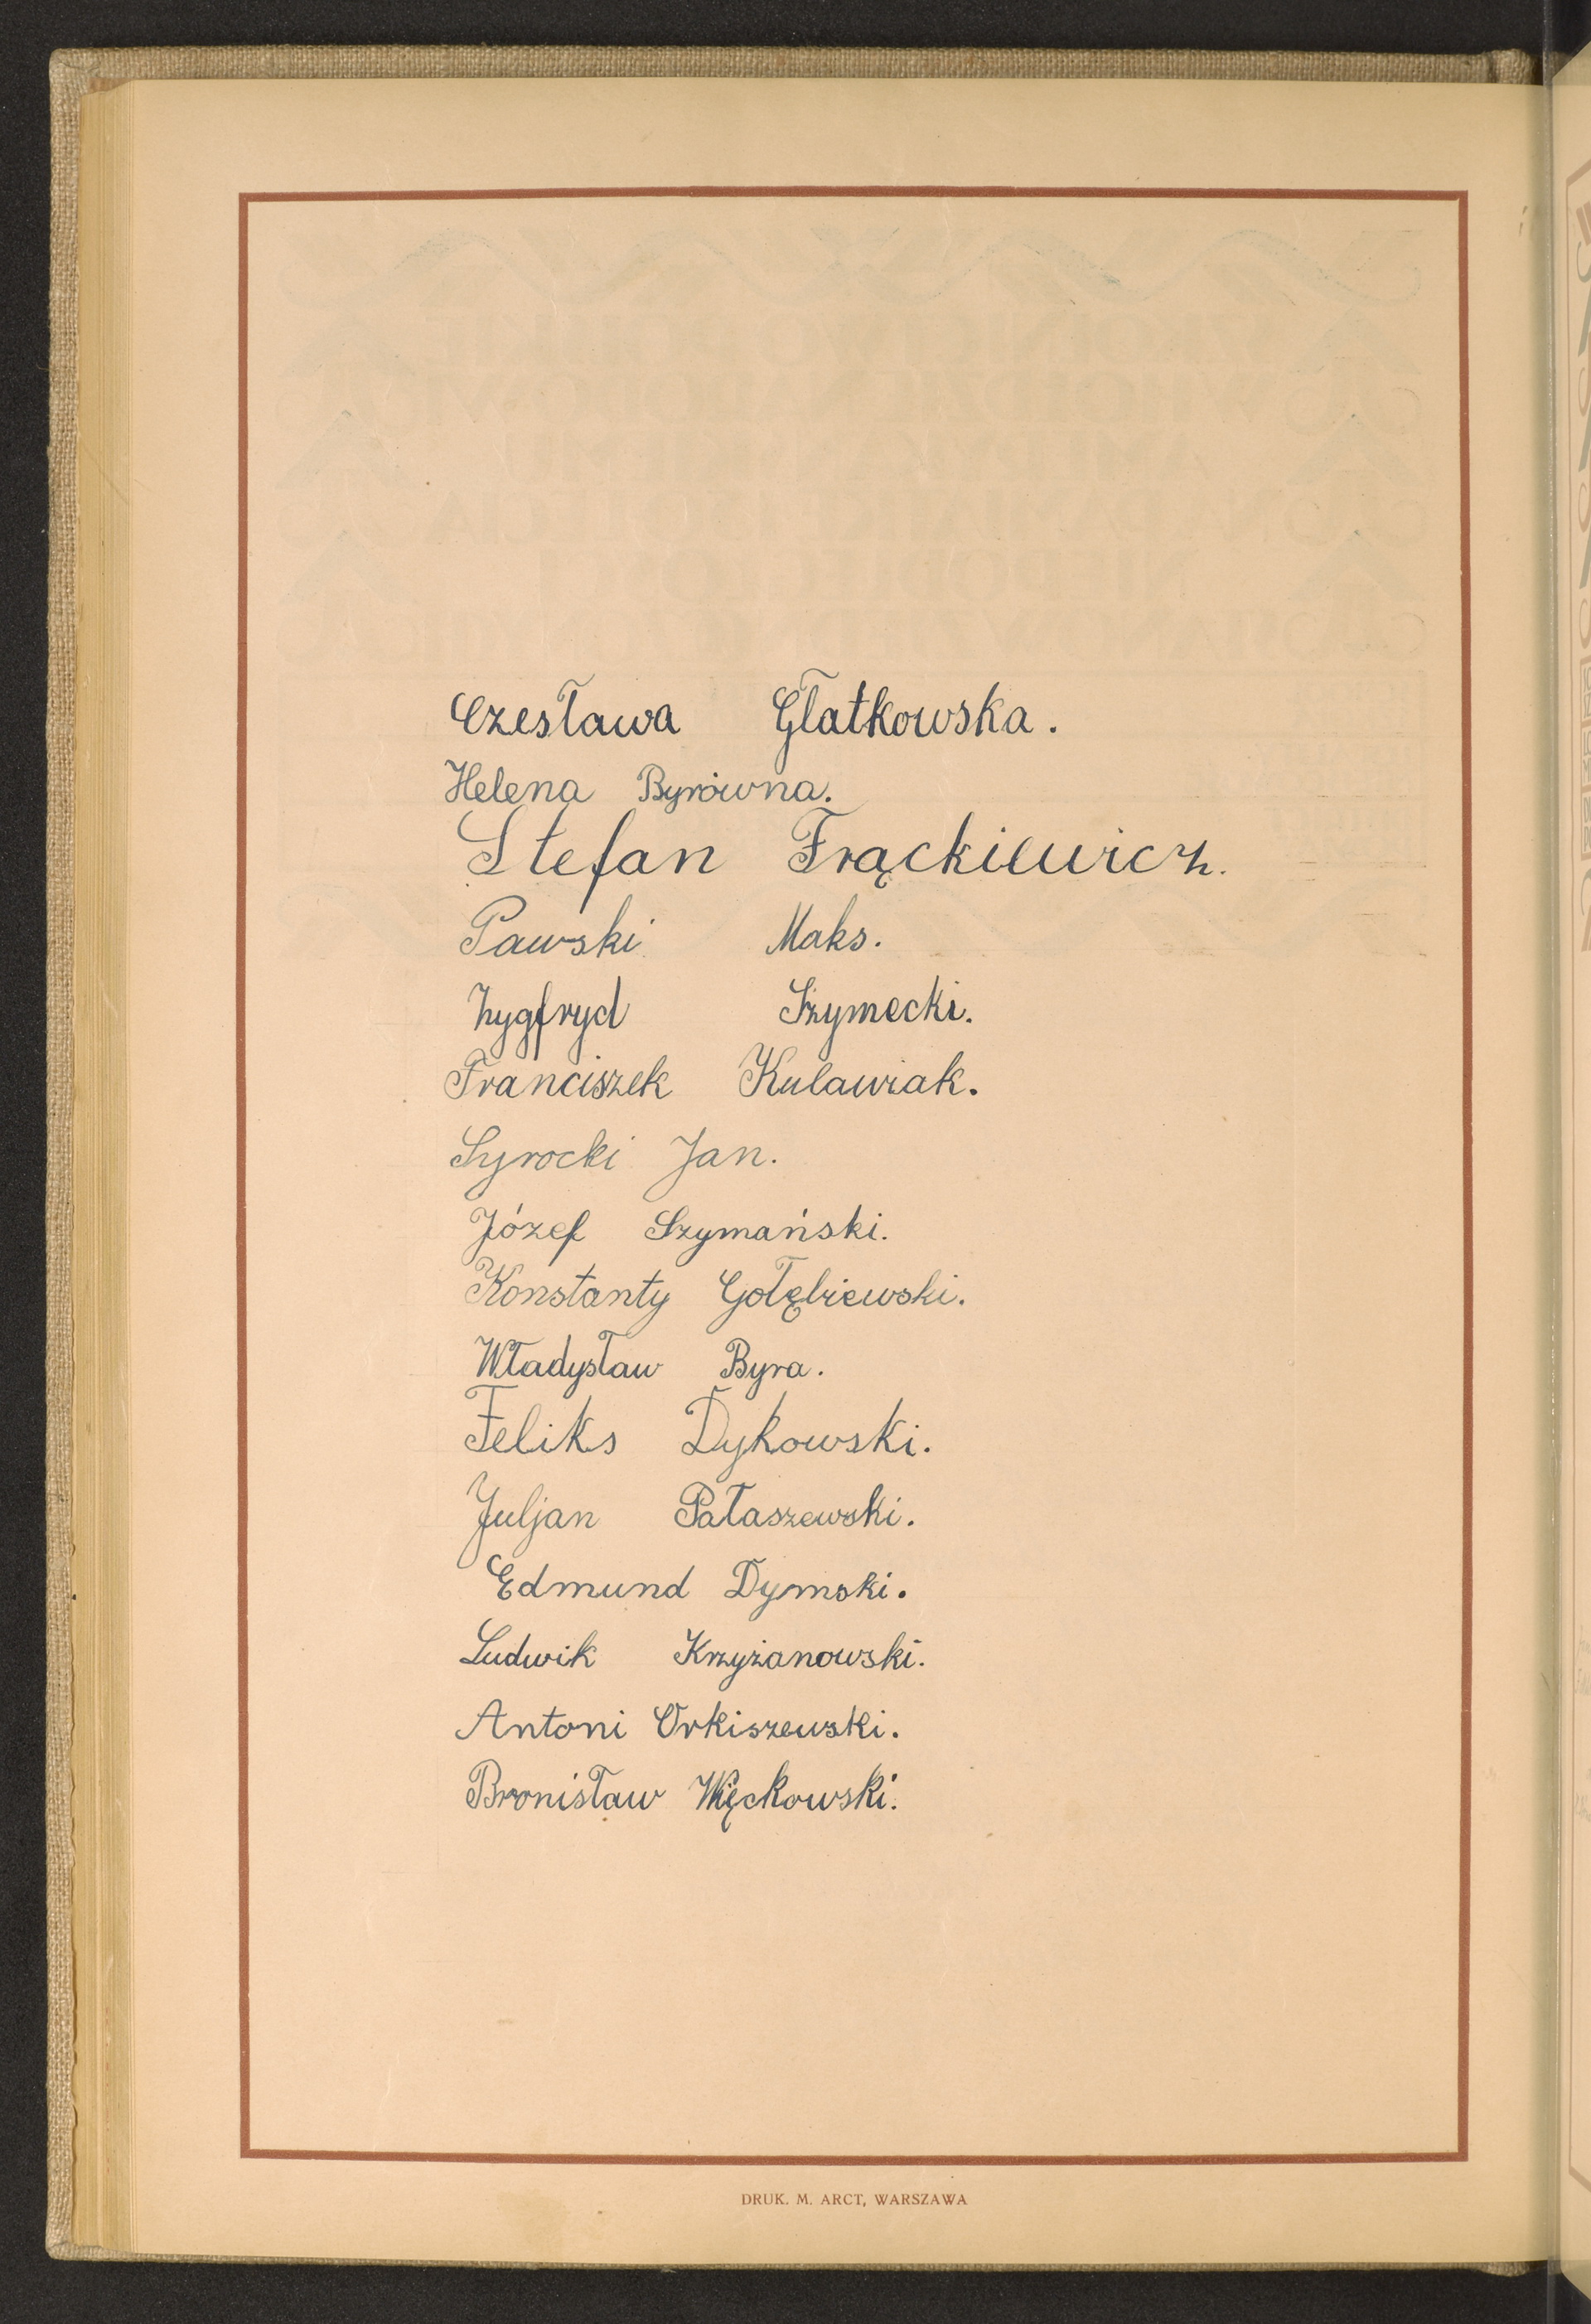 Czesława Głatkowska.
Helena Byrówna.
Stefan Frąckiewicz.
Pawski Maks.
Zygfryd Szymecki.
Franciszek Kulawiak.
Syrocki Jan.
Józef Szymański.
Konstanty Gołębiewski.
Władysław Byra.
Feliks Dykowski.
Juljan Pałaszewski.
Edmund Dymski.
Ludwik Krzyżanowski.
Antoni Orkiszewski.
Bronisław Więckowski.
DRUK. M. ARCT, WARSZAWA